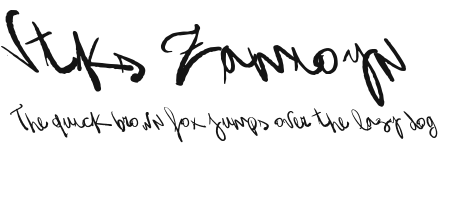 Vtks
The quick brown fox jumps over the lazy dog